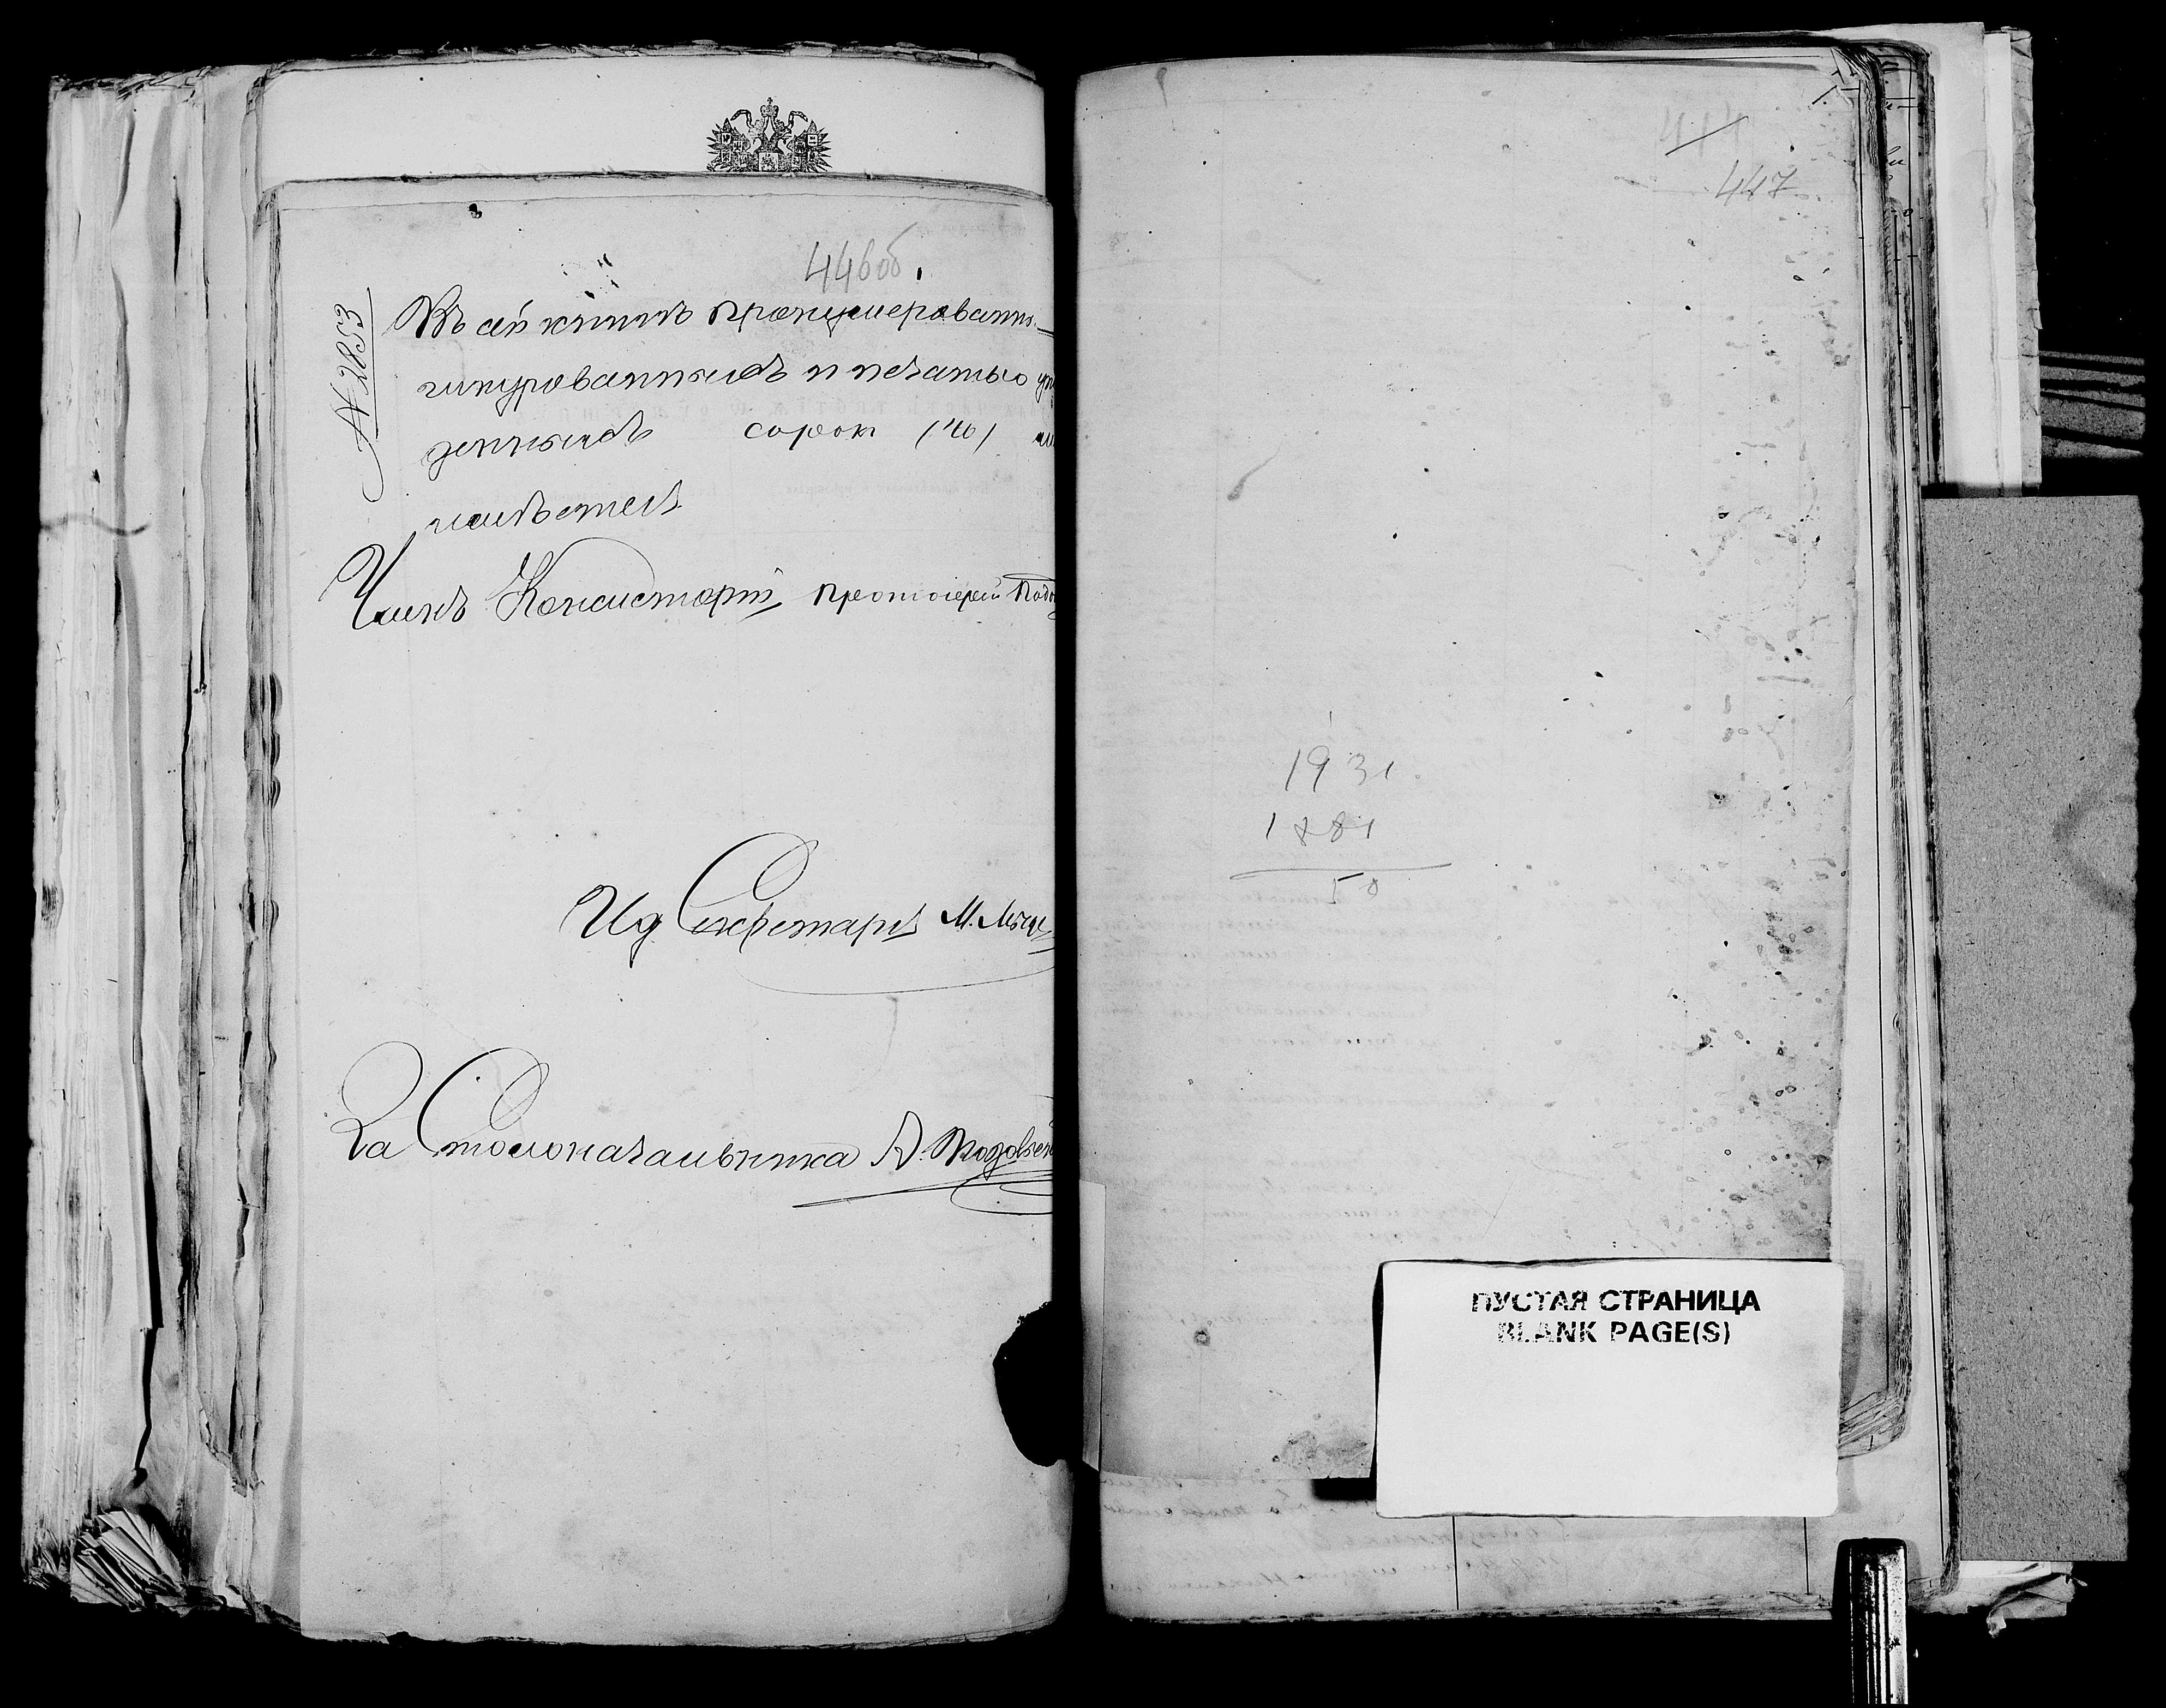 446 об.
№ 2853
Въ сей книгѣ пронумерованны
шнурованныхъ и печатью
денныхъ сорок (40)
имѣется
Членъ Консисторіи Протоіерей
Ид Секретаря М.
За Столоначальника А.
447
1931
1881
50
ПУСТАЯ СТРАНИЦА
BLANK PAGE(S)